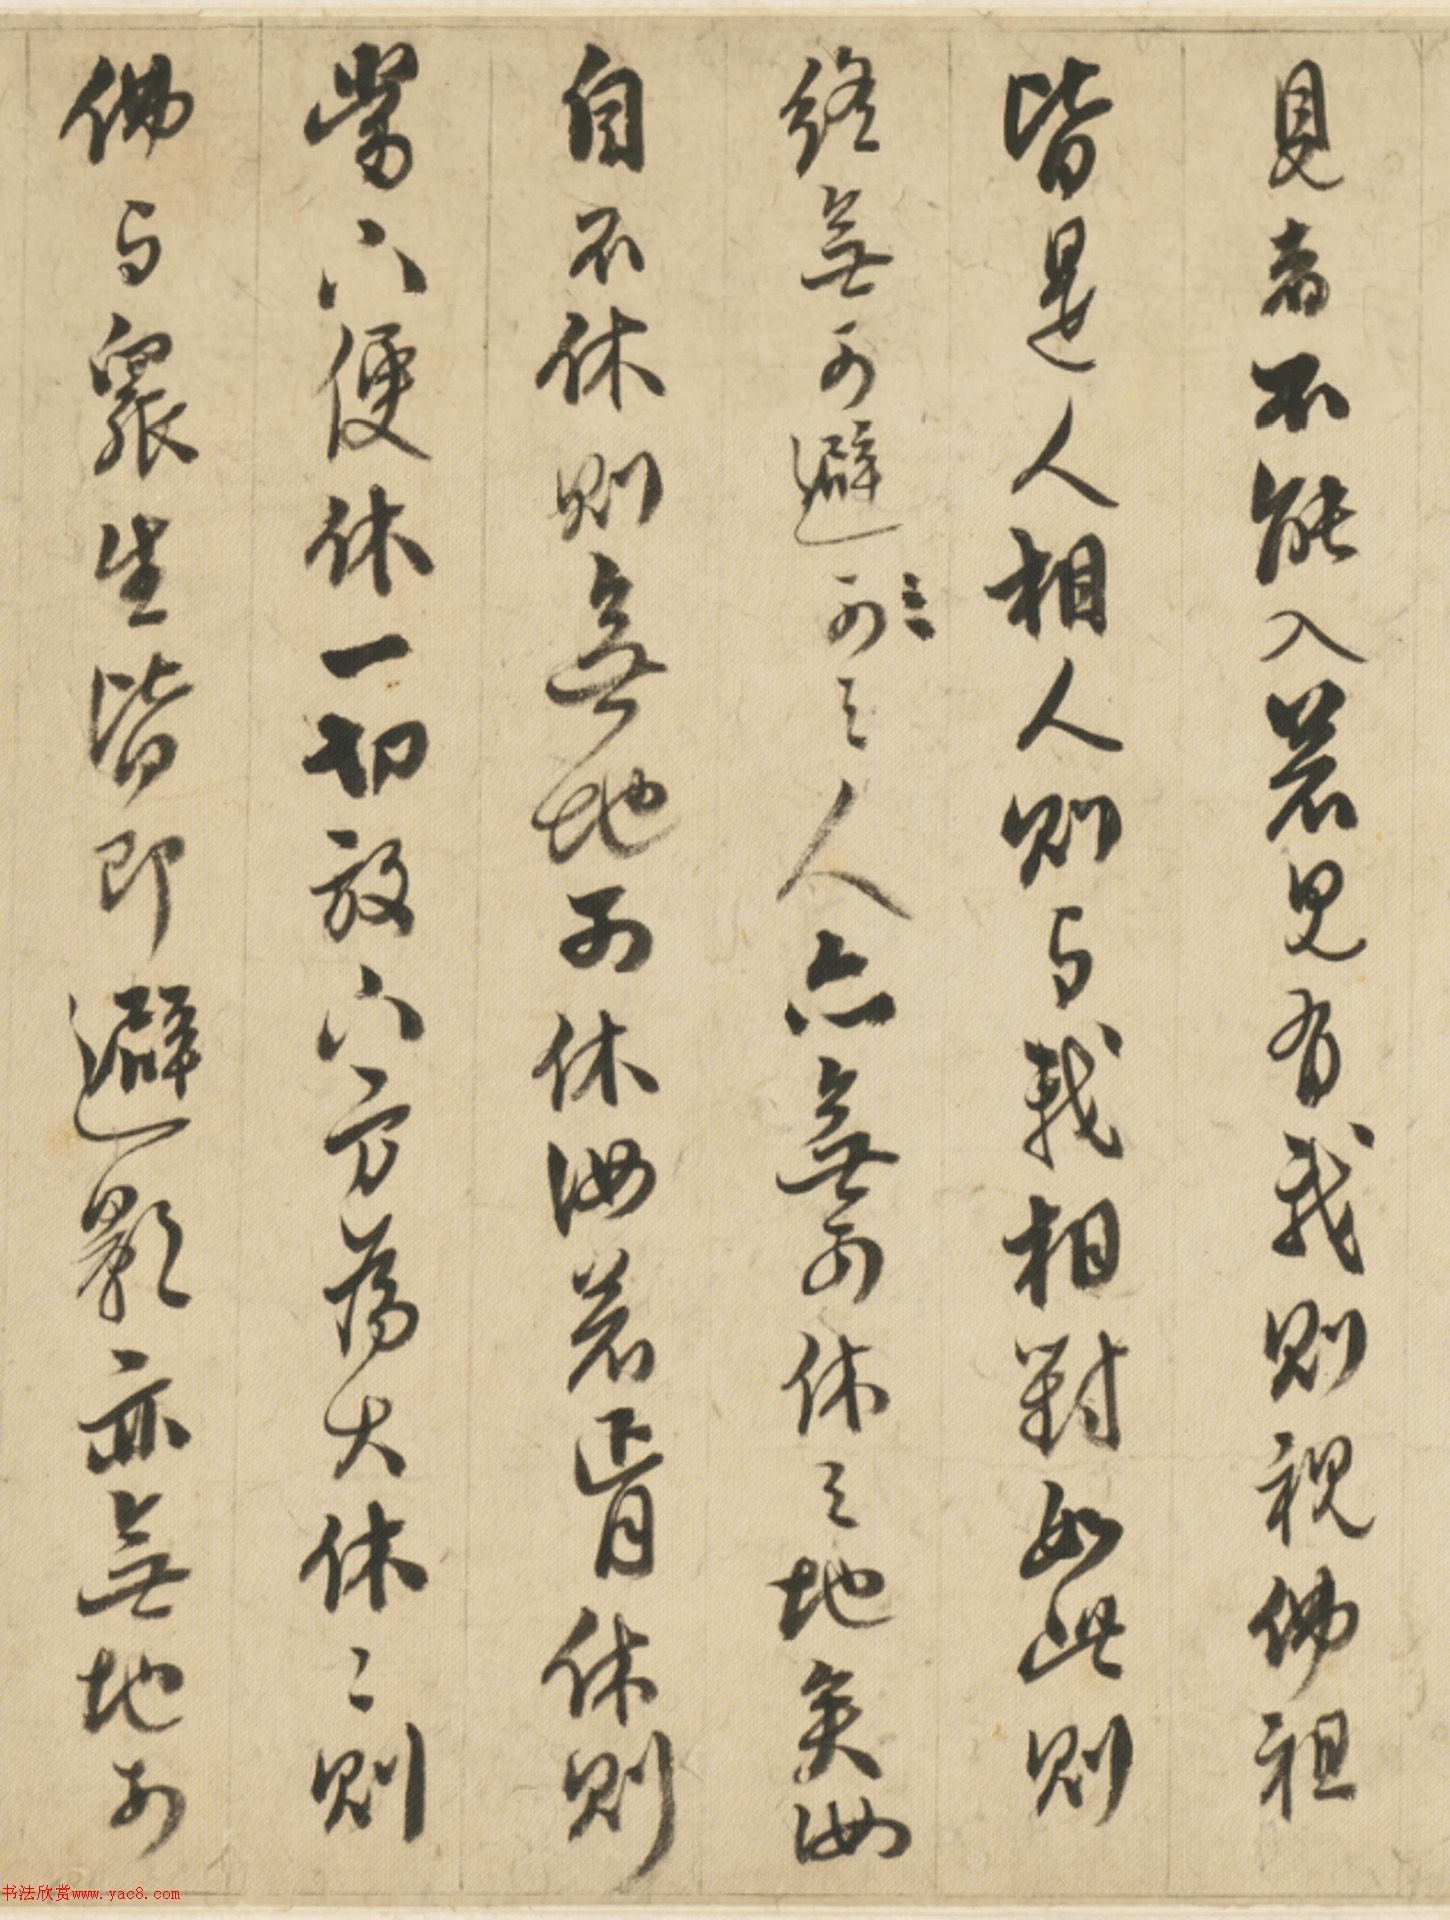 見者不能入若見有我則視佛祖
皆是人相人則与我相對如此則
終無可避可之人亦無可休之地矣汝
自不休則無地可休汝若肯休則
當下便休一切放下方為大休〻則
佛与眾生皆即避影亦無地可
书法欣赏www.yac8.com